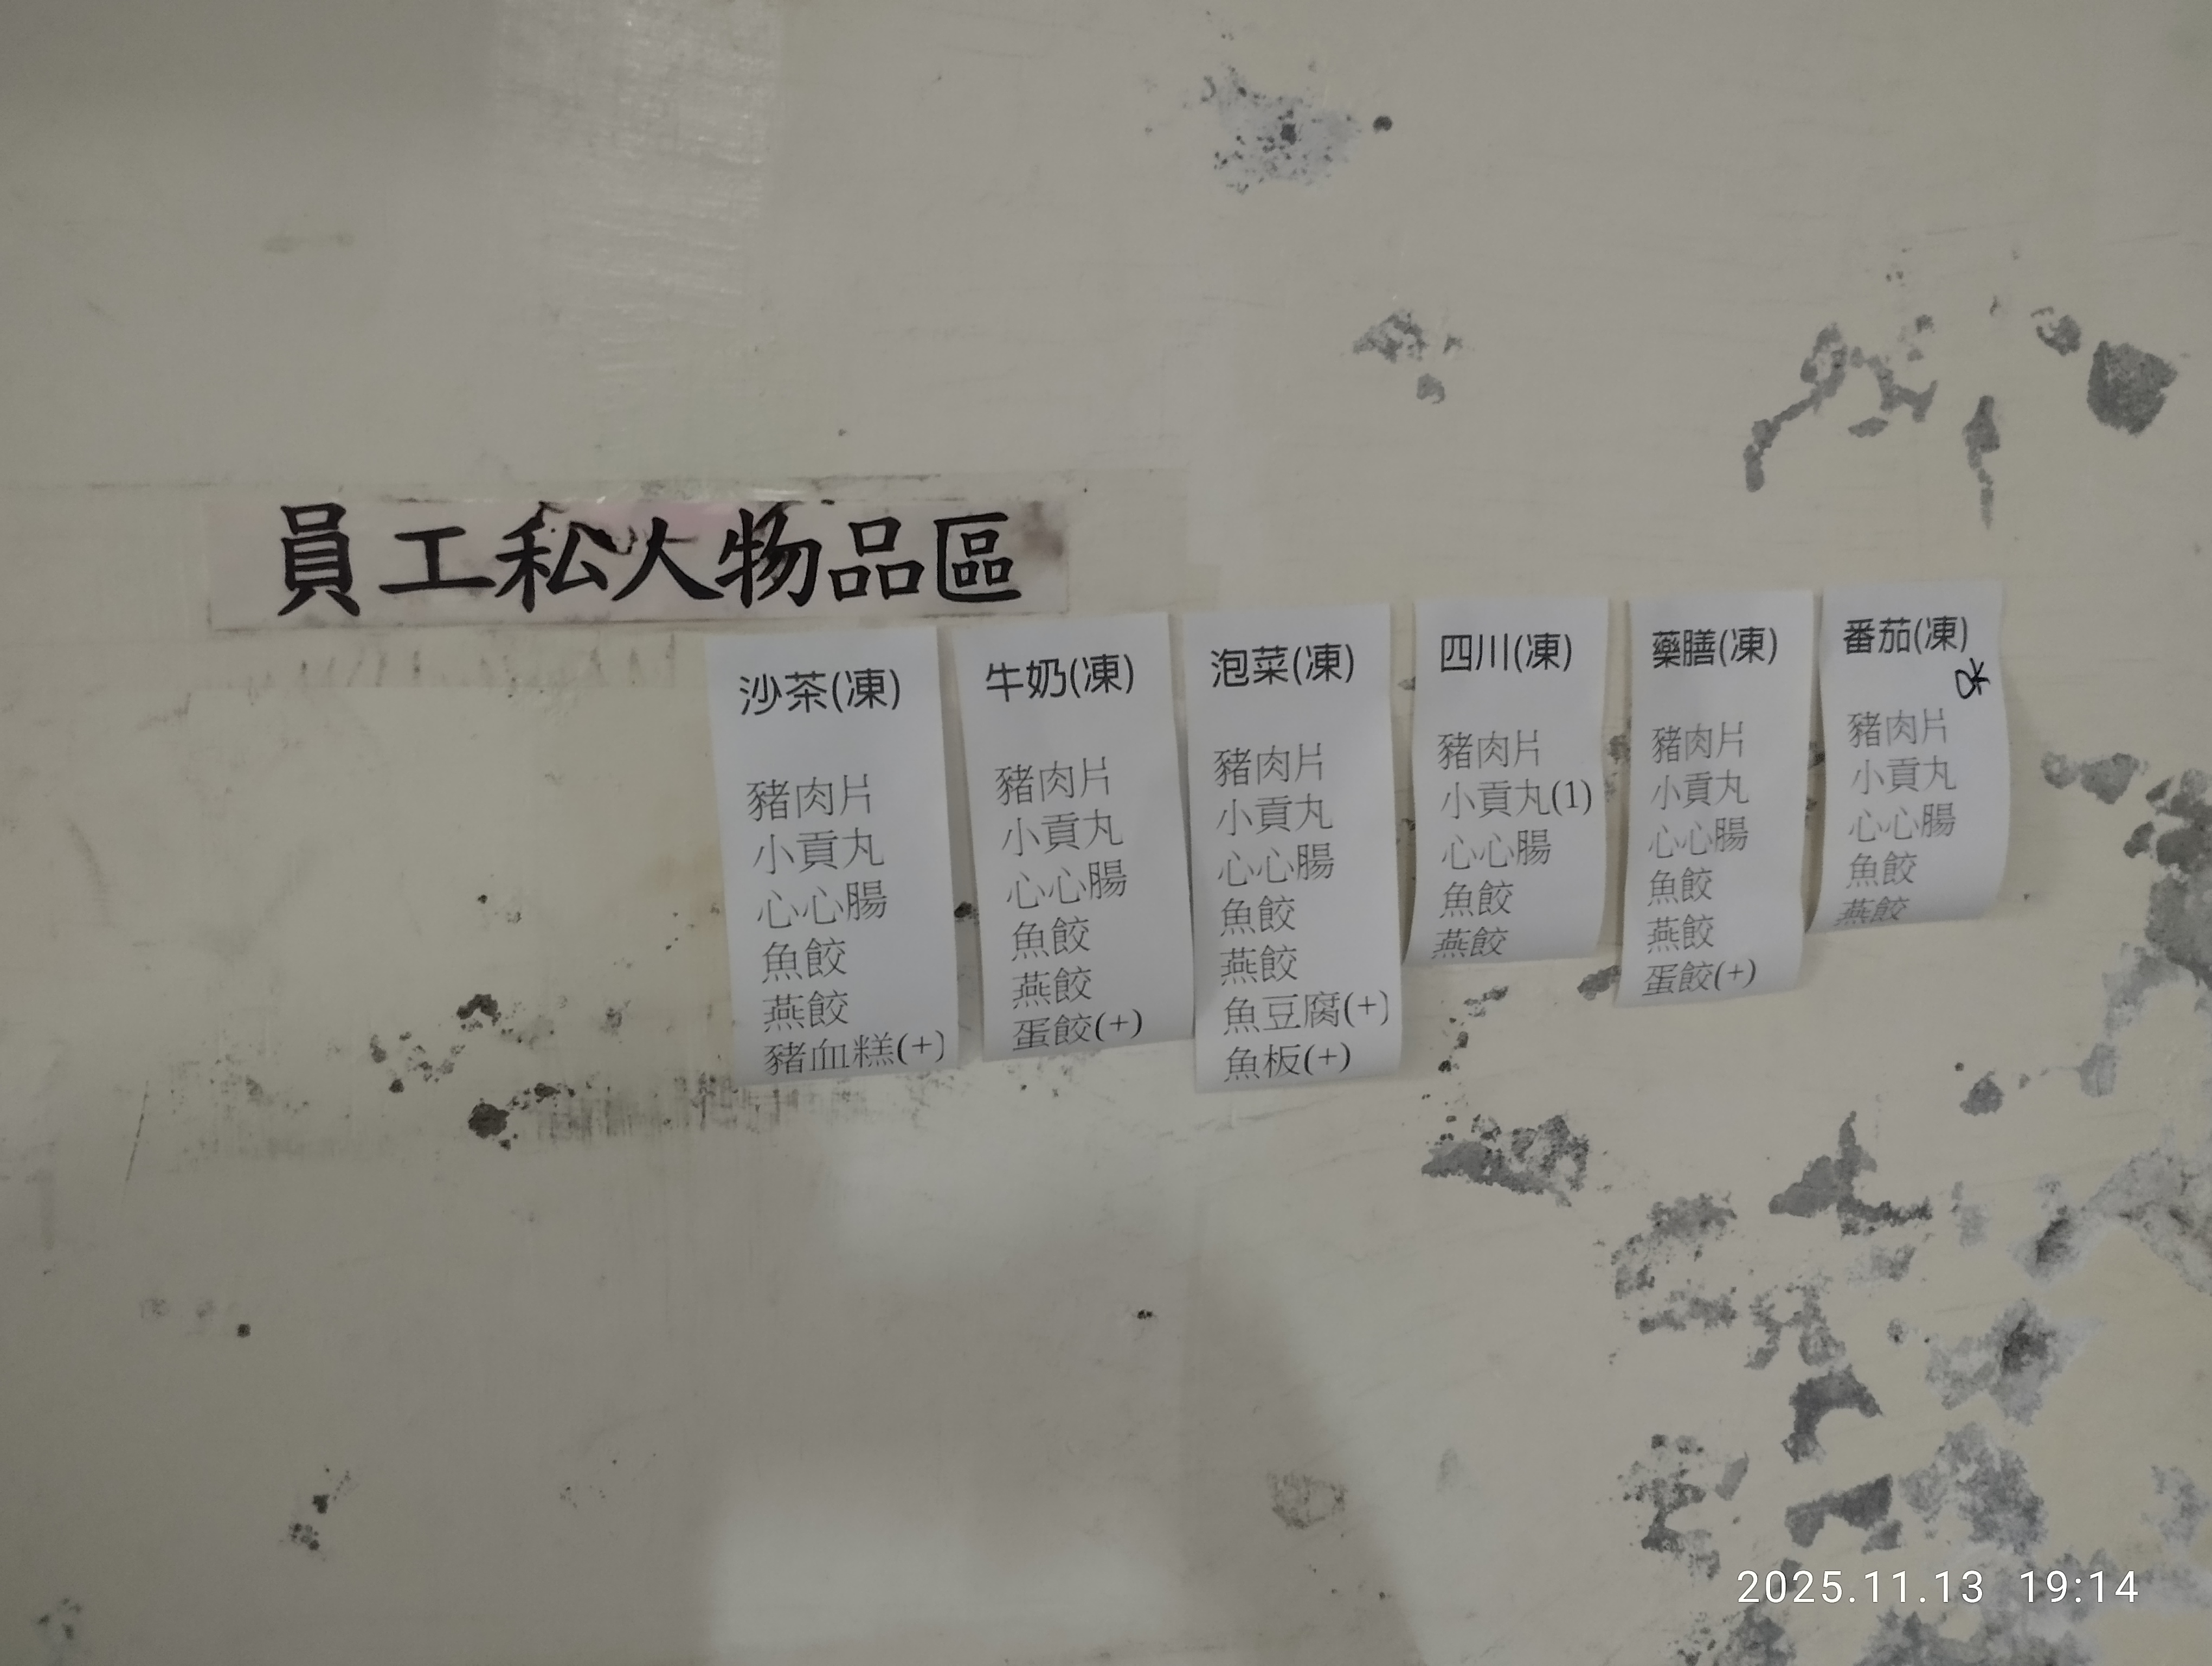 員工私人物品區
沙茶(凍)
豬肉片
小貢丸
心心腸
魚餃
燕餃
豬血糕(+)
牛奶(凍)
豬肉片
小貢丸
心心腸
魚餃
燕餃
蛋餃(+)
泡菜(凍)
豬肉片
小貢丸
心心腸
魚餃
燕餃
魚豆腐(+)
魚板(+)
四川(凍)
豬肉片
小貢丸(1)
心心腸
魚餃
燕餃
藥膳(凍)
豬肉片
小貢丸
心心腸
魚餃
燕餃
蛋餃(+)
番茄(凍)
豬肉片
小貢丸
心心腸
魚餃
燕餃
2025.11.13 19:14